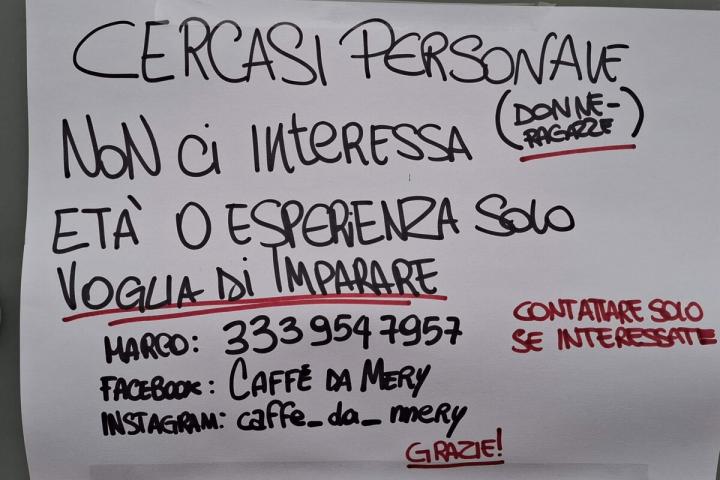 CERCASI PERSONALE
(DONNE-
RAGAZZE)
NON ci INTERESSA
ETÀ O ESPERIENZA SOLO
VOGLIA DI IMPARARE
MARCO: 333 954 7957
FACEBOOK: CAFFÈ DA MERY
INSTAGRAM: caffe_da_mery
CONTATTARE SOLO
SE INTERESSATE
GRAZIE!